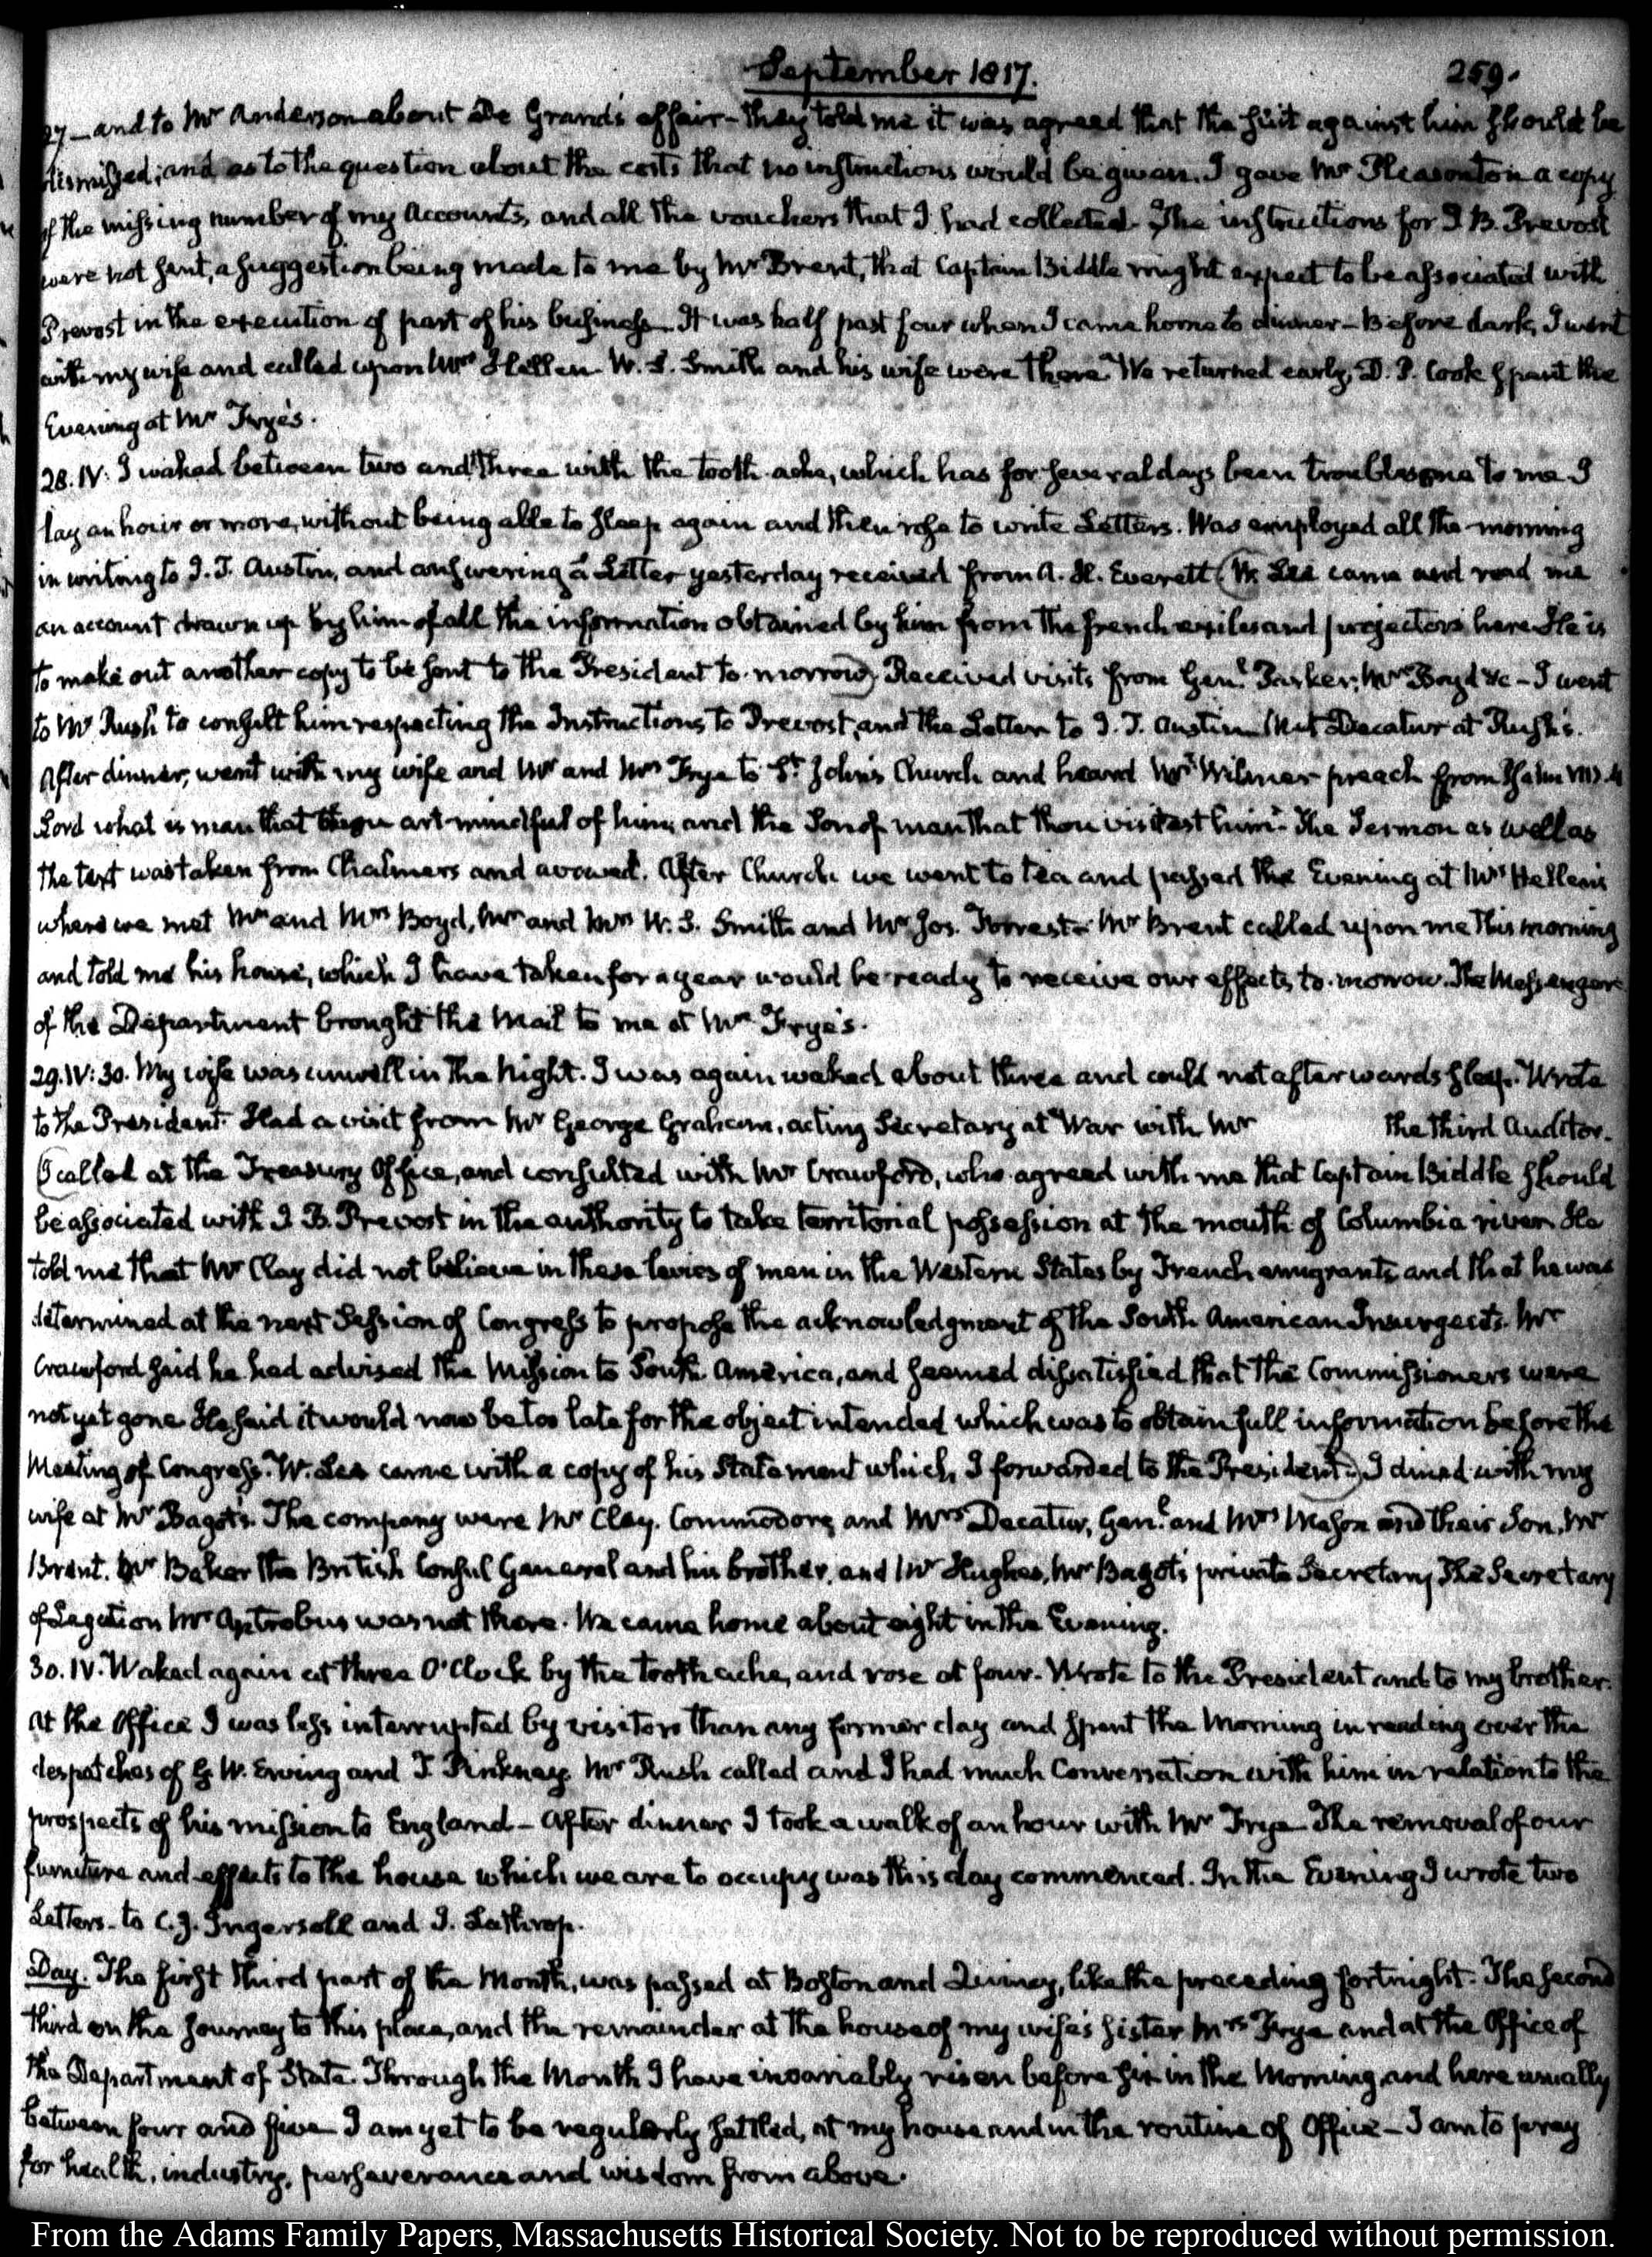 September 1817.
259.
27 - and to Mr Anderson about De Grand's affair - they told me it was agreed that the suit against him should be
dismissed; and as to the question about the costs that no instructions would be given. I gave Mr Pleasonton a copy
of the missing number of my Accounts, and all the vouchers that I had collected. The instructions for J. B. Prevost
were not sent, a suggestion being made to me by Mr Brent, that Captain Biddle might expect to be associated with
Prevost in the execution of part of his business. It was half past four when I came home to dinner - Before dark, I went
with my wife and called upon Mrs Hellen. W. S. Smith and his wife were there. We returned early, D. P. Cook spent the
Evening at Mr Frye's.
28. IV: I waked between two and three with the tooth-ache, which has for several days been troublesome to me I
lay an hour or more, without being able to sleep again and then rose to write Letters. Was employed all the morning
in writing to J. T. Austin, and answering a Letter yesterday received from A. H. Everett (W. Lee came and read me
an account drawn up by him of all the information obtained by him from the french exiles and projectors here He is
to make out another copy to be sent to the President to-morrow) Received visits from Genl. Parker, Mr Boyd &c - I went
to Mr Rush to consult him respecting the Instructions to Prevost, and the Letter to J. T. Austin. Met Decatur at Rush's.
After dinner, went with my wife and Mr and Mrs Frye to St John's Church and heard Mr Wilmer preach from Psalm VIII. 4
Lord what is man that thou art mindful of him, and the Son of man that thou visitest him. The Sermon as well as
the text was taken from Chalmers and avowed. After Church we went to tea and passed the Evening at Mrs Hellen's
where we met Mr and Mrs Boyd, Mr and Mrs W. S. Smith and Mr Jos. Forrest. Mr Brent called upon me this morning
and told me his house, which I have taken for a year would be ready to receive our effects to-morrow. The Messenger
of the Department brought the Mail to me at Mr Frye's.
29. IV:30. My wife was unwell in the Night. I was again waked about three and could not afterwards sleep. Wrote
to the President. Had a visit from Mr George Graham, acting Secretary at War with Mr the third Auditor.
(I called at the Treasury Office, and consulted with Mr Crawford, who agreed with me that Captain Biddle should
be associated with J. B. Prevost in the authority to take territorial possession at the mouth of Columbia river He
told me that Mr Clay did not believe in these levies of men in the Western States by French emigrants and that he was
determined at the next Session of Congress to propose the acknowledgment of the South American Insurgents. Mr
Crawford said he had advised the Mission to South America, and seemed dissatisfied that the Commissioners were
not yet gone He said it would now be too late for the object intended which was to obtain full information before the
Meeting of Congress. W. Lee came with a copy of his Statement which, I forwarded to the President.) I dined with my
wife at Mr Bagot's. The company were Mr Clay, Commodore and Mrs Decatur, Genl. and Mrs Mason and their Son, Mr
Brent, Mr Baker the British Consul General and his brother, and Mr Hughes, Mr Bagot's private Secretary The Secretary
of Legation Mr Antrobus was not there. We came home about eight in the Evening.
30. IV. Waked again at three O'Clock by the tooth ache, and rose at four. Wrote to the President and to my brother.
At the Office I was less interrupted by visitors than any former day and spent the Morning in reading over the
despatches of G. W. Erving and T. Pinkney. Mr Rush called and I had much Conversation with him in relation to the
prospects of his mission to England - After dinner I took a walk of an hour with Mr Frye The removal of our
furniture and effects to the house which we are to occupy was this day commenced. In the Evening I wrote two
Letters - to C. J. Ingersoll and J. Lathrop.
Day. The first third part of the Month, was passed at Boston and Quincy, like the preceding fortnight. The second
third on the Journey to this place, and the remainder at the house of my wife's sister Mrs Frye and at the Office of
the Department of State. Through the Month I have invariably risen before six in the Morning, and here usually
between four and five I am yet to be regularly settled, at my house and in the routine of Office - I am to pray
for health, industry, perseverance and wisdom from above.
From the Adams Family Papers, Massachusetts Historical Society. Not to be reproduced without permission.